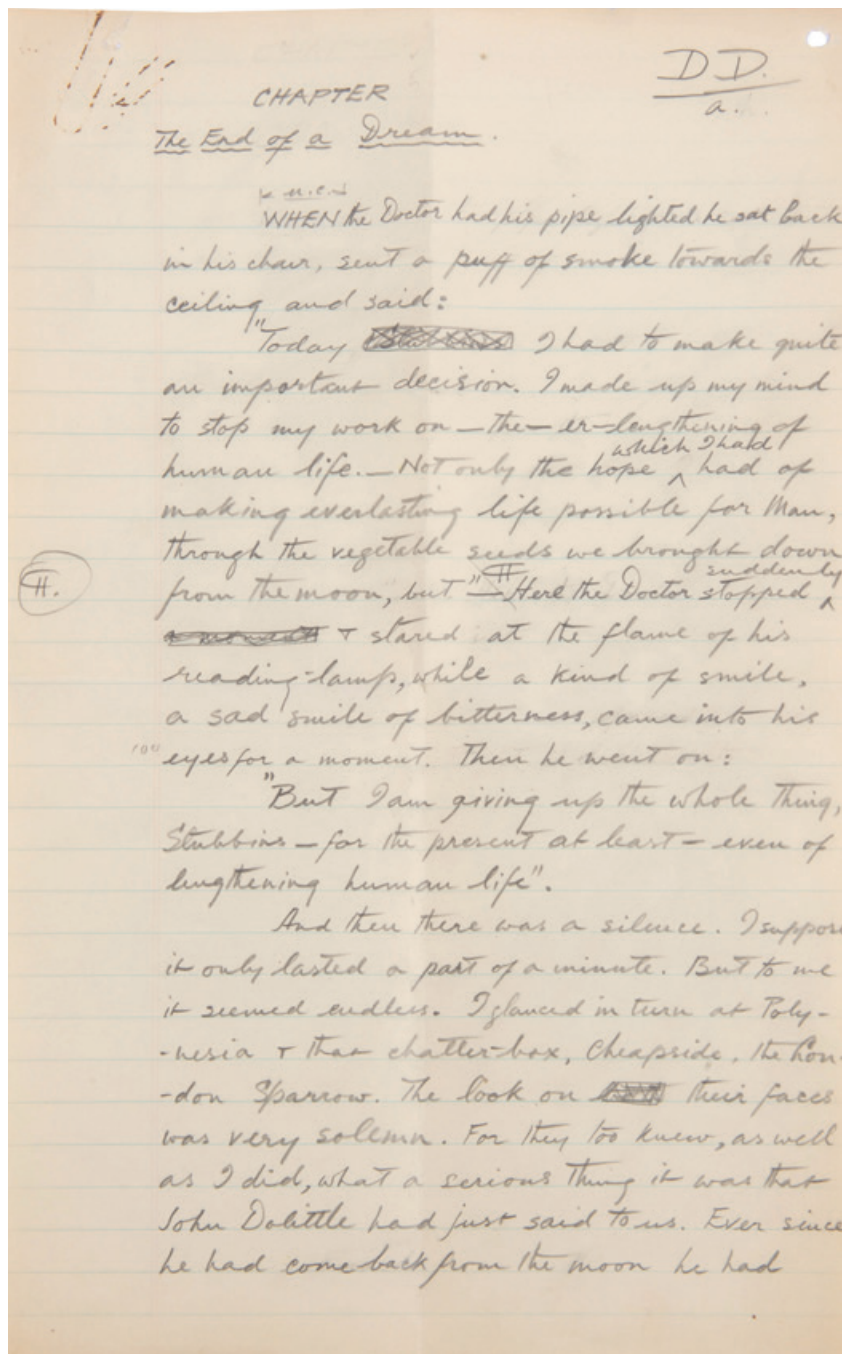 DD.
a.
CHAPTER
The End of a Dream.
u.c.
WHEN the Doctor had his pipe lighted he sat back
in his chair, sent a puff of smoke towards the
ceiling and said:
"Today I had to make quite
an important decision. I made up my mind
to stop my work on — the — er — lengthening of
which I had
human life. — Not only the hope ^ had of
making everlasting life possible for Man,
through the vegetable seeds we brought down
suddenly
from the moon, but "— Here the Doctor stopped ^
a moment + stared at the flame of his
reading-lamp, while a kind of smile,
a sad smile of bitterness, came into his
eyes for a moment. Then he went on:
"But I am giving up the whole thing,
Stubbins — for the present at least — even of
lengthening human life".
And then there was a silence. I suppose
it only lasted a part of a minute. But to me
it seemed endless. I glanced in turn at Poly-
-nesia + that chatter-box, Cheapside, the Lon-
-don Sparrow. The look on their faces
was very solemn. For they too knew, as well
as I did, what a serious thing it was that
John Dolittle had just said to us. Ever since
he had come back from the moon he had